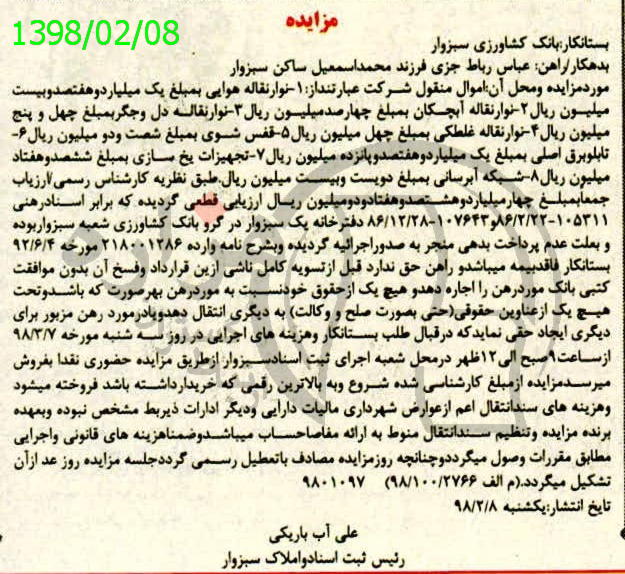 مزایده
1398/02/08
بستانکار:بانک کشاورزی سبزوار
بدهکار/راهن: عباس رباط جزی فرزند محمداسمعیل ساکن سبزوار
موردمزایده ومحل آن:اموال منقول شرکت عبارتنداز:۱-نوارنقاله هوایی بمبلغ یک میلیاردوهفتصدوبیست
میلیون ریال۲-نوارنقاله آبچکان بمبلغ چهارصدمیلیون ریال۳-نوارنقاله دل وجگربمبلغ چهل و پنج
میلیون ریال۴-نوارنقاله غلطکی بمبلغ چهل میلیون ریال۵-قفس شوی بمبلغ شصت ودو میلیون ریال۶-
تابلوبرق اصلی بمبلغ یک میلیاردوهفتصدوپانزده میلیون ریال۷-تجهیزات یخ سازی بمبلغ ششصدوهفتاد
میلیون ریال۸-شبکه آبرسانی بمبلغ دویست وبیست میلیون ریال.طبق نظریه کارشناس رسمی/ارزیاب
جمعابمبلغ چهارمیلیاردوهشتصدوهفتادودومیلیون ریال ارزیابی قطعی گردیده که برابر اسنادرهنی
۱۰۵۳۱۱-۸۶/۲/۲۲و۱۰۷۶۴۳-۸۶/۱۲/۲۸ دفترخانه یک سبزوار در گرو بانک کشاورزی شعبه سبزواربوده
و بعلت عدم پرداخت بدهی منجر به صدوراجرائیه گردیده وبشرح نامه وارده ۲۱۸۰۰۱۲۸۶ مورخه ۹۲/۶/۴
بستانکار فاقدبیمه میباشدو راهن حق ندارد قبل ازتسویه کامل ناشی ازین قرارداد وفسخ آن بدون موافقت
کتبی بانک موردرهن را اجاره دهدو هیچ یک ازحقوق خودنسبت به موردرهن بهرصورت که باشدوتحت
هیچ یک ازعناوین حقوقی(حتی بصورت صلح و وکالت) به دیگری انتقال دهدویادرمورد رهن مزبور برای
دیگری ایجاد حقی نمایدکه درقبال طلب بستانکار وهزینه های اجرایی در روز سه شنبه مورخه ۹۸/۳/۷
ازساعت۹صبح الی۱۲ظهر درمحل شعبه اجرای ثبت اسنادسبزوار ازطریق مزایده حضوری نقدا بفروش
میرسدمزایده ازمبلغ کارشناسی شده شروع وبه بالاترین رقمی که خریدارداشته باشد فروخته میشود
وهزینه های سندانتقال اعم ازعوارض شهرداری مالیات دارایی ودیگر ادارات ذیربط مشخص نبوده وبعهده
برنده مزایده وتنظیم سندانتقال منوط به ارائه مفاصاحساب میباشدوضمناهزینه های قانونی واجرایی
مطابق مقررات وصول میگرددوچنانچه روزمزایده مصادف باتعطیل رسمی گرددجلسه مزایده روز عد ازآن
تشکیل میگردد.(م الف ۹۸/۱۰۰/۲۷۶۶) ۹۸۰۱۰۹۷
تایخ انتشار:یکشنبه ۹۸/۲/۸
علی آب باریکی
رئیس ثبت اسنادواملاک سبزوار